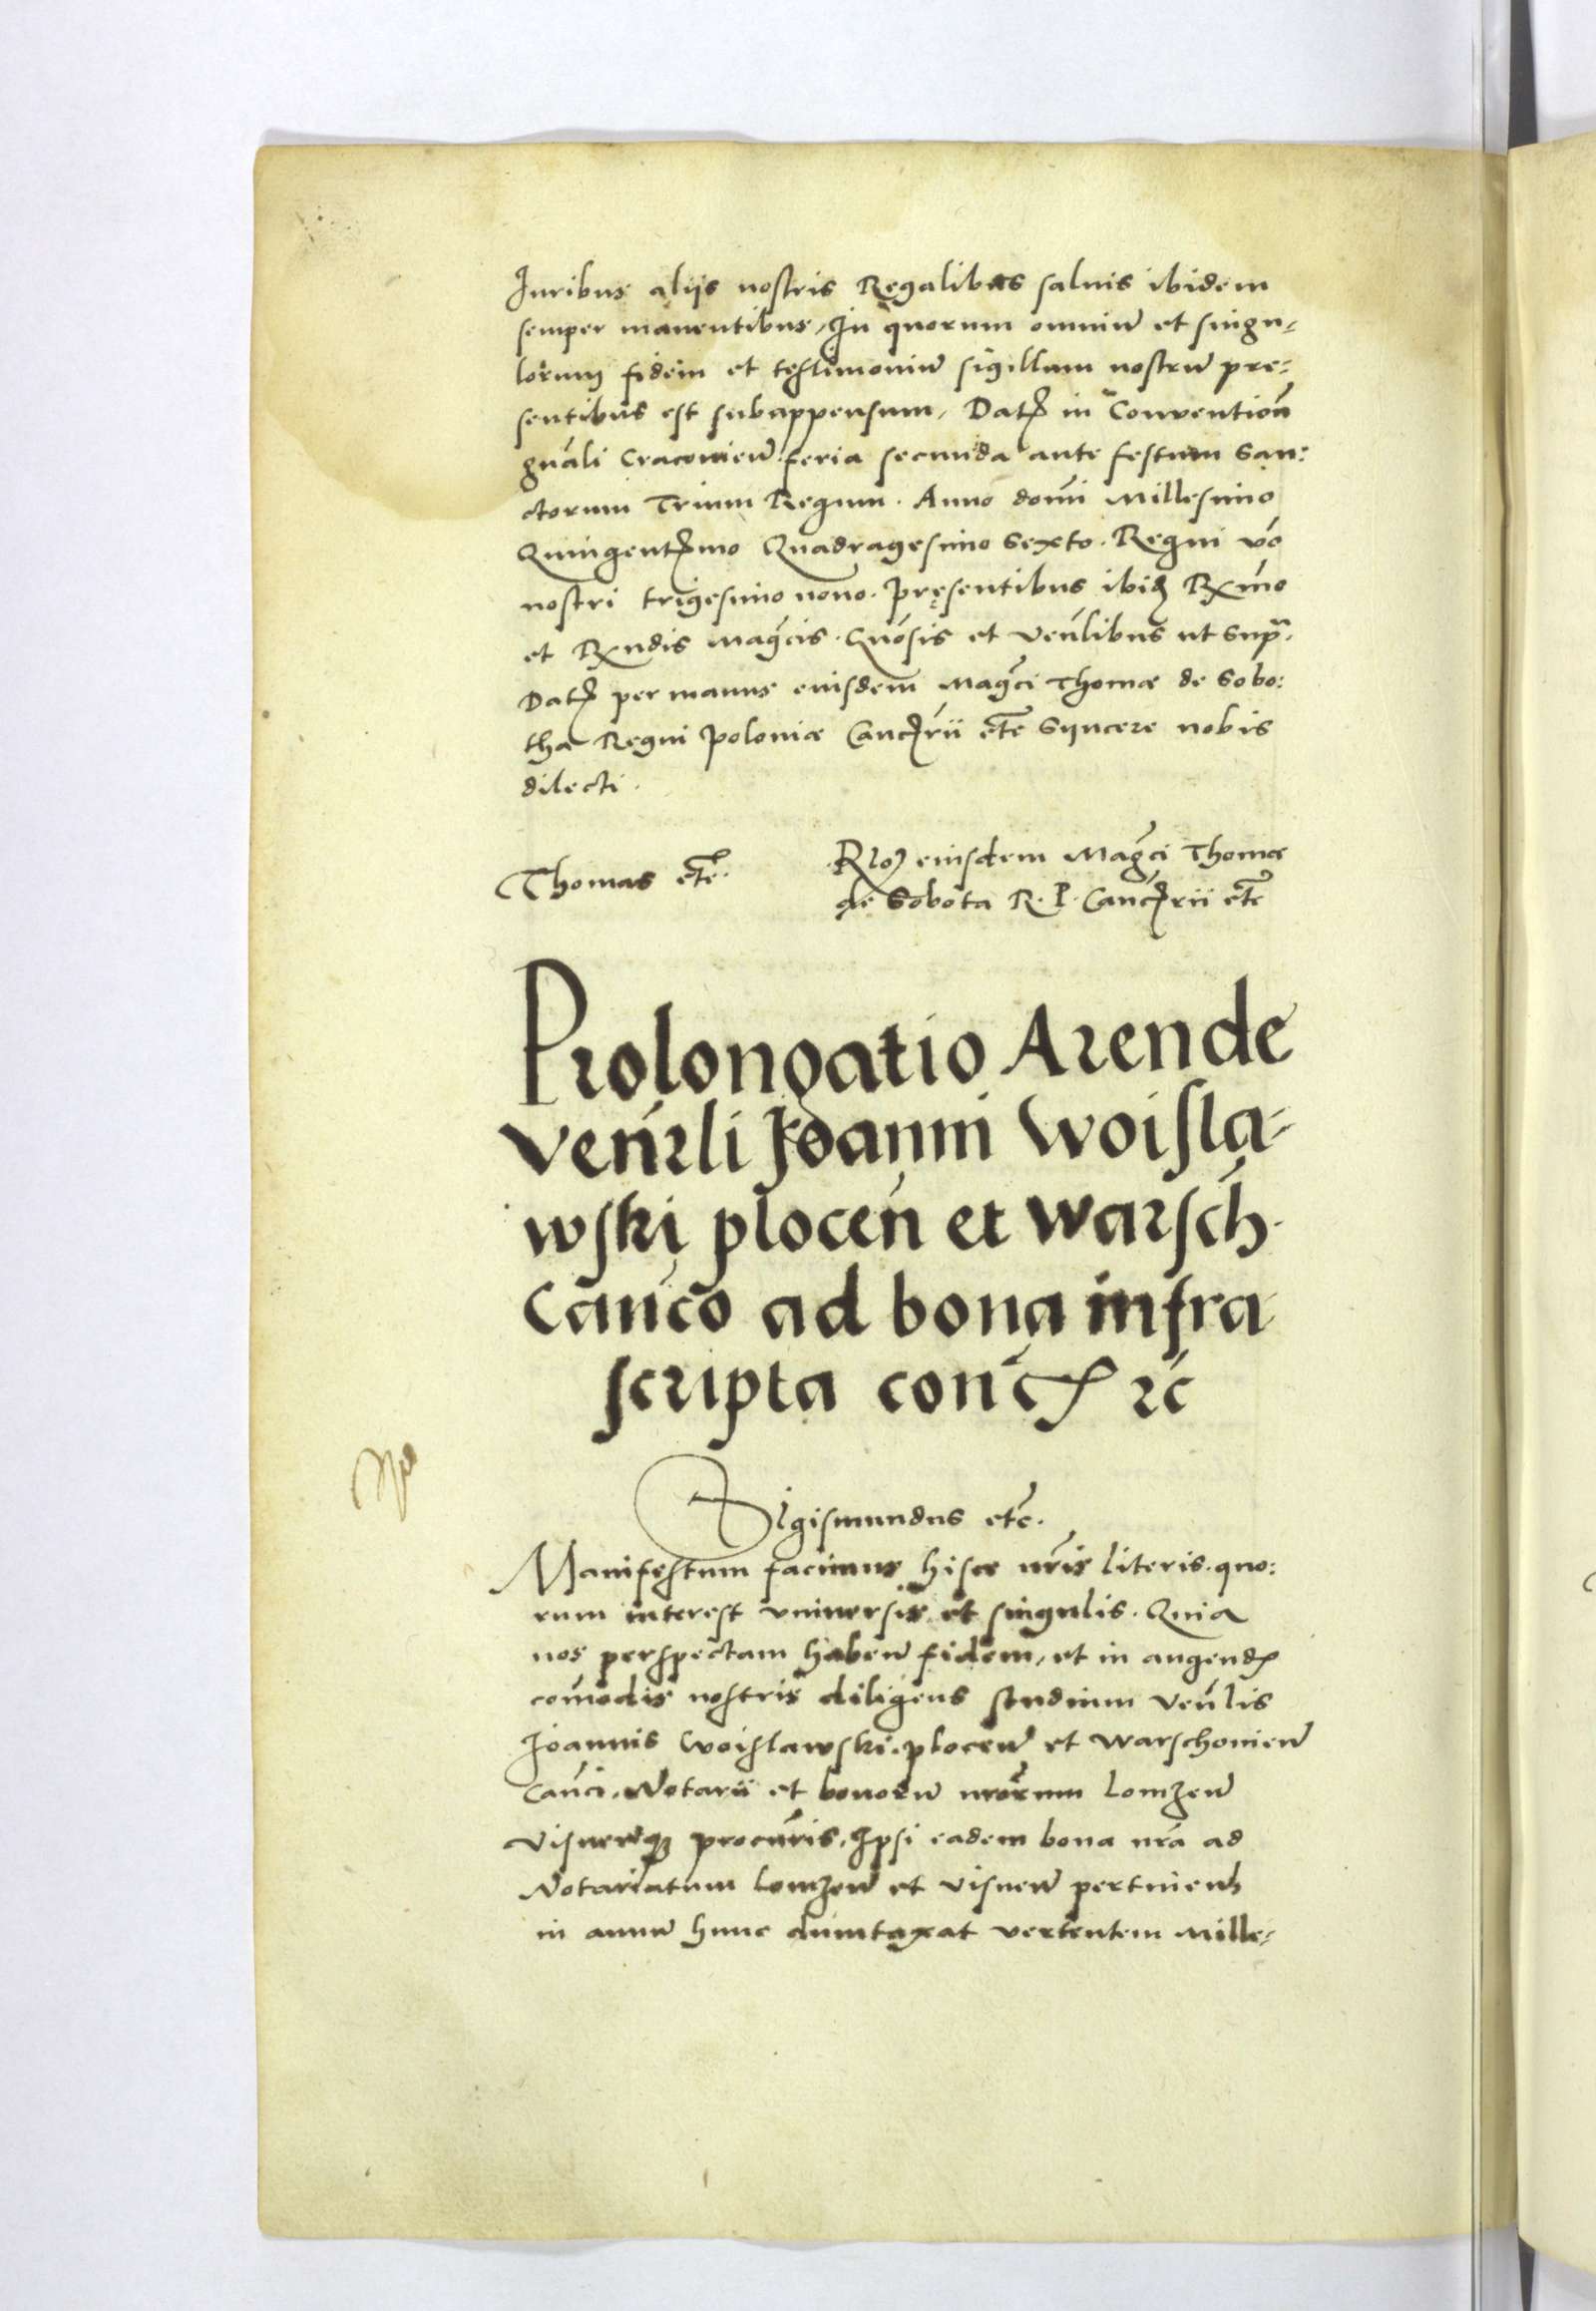 Iuribus aliis nostris Regalibus saluis ibidem
semper manentibus, In quorum omniũ et singu-
lorum fidem et testimoniũ sigillum nostrũ pre-
sentibus est subappensum, Datʒ in Convention̄
gn̄ali Cracovien̄ feria secunda ante festum San:
ctorum Trium Regum. Anno domī Millesimo
Quingentʒmo Quadragesimo Sexto. Regni vō
nostri trigesimo nono. Pręsentibus ibidʒ Rx̄mo
et Rx̄ndis Magc̄is. Gn̄osis et Ven̄libus ut Supra.
Datʒ per manus eiusdem Magc̄i Thomæ de Sobo:
tha Regni Poloniæ Cancʒrii etc̄ Syncere nobis
dilecti.
Thomas etc̄.
Rl̃o eiusdem Magc̄i Thomæ
de Sobota R. P. Cancʒrii etc̄
Prolongatio Arende
Ven̄rli Joanni Woisla-
wski plocen̄ et Warsch.
Can̄co ad bona infra-
scripta conc̄ʒ rc̄
Sigismundus etc̄.
Manifestum facimus hisce nr̄is literis. quo:
rum interest vniuersis et singulis. Quia
nos perspectam haben̄ fidem, et in augendʒ
com̄odis nostris diligens studium Ven̄lis
Joannis Woislawski. plocen̄ et Warschouien̄
Can̄ci, Notarii et bonorũ nr̄orum Lomzen̄
Visnen̄qʒ procur̄is, Ipsi eadem bona nr̄a ad
Notariatum Lomzen̄ et Visnen̄ pertinen̄
in annũ hunc dumtaxat vertentem Mille-